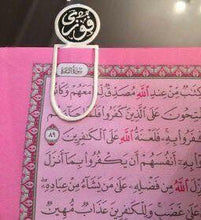 فوزي
كِتَٰبٌ مِّنْ عِندِ ٱللَّهِ مُصَدِّقٌ لِّمَا مَعَهُمْ وَكَانُوا۟
عَلَى ٱلَّذِينَ كَفَرُوا۟ فَلَمَّا
بِهِۦ فَلَعْنَةُ ٱللَّهِ عَلَى ٱلْكَٰفِرِينَ ٨٩
بِهِۦٓ أَنفُسَهُمْ أَن يَكْفُرُوا۟ بِمَآ أَنزَلَ
ٱللَّهُ مِن فَضْلِهِۦ عَلَىٰ مَن يَشَآءُ مِنْ عِبَادِهِۦ
عَلَىٰ غَضَبٍ وَلِلْكَٰفِرِينَ عَذَابٌ مُّهِينٌ